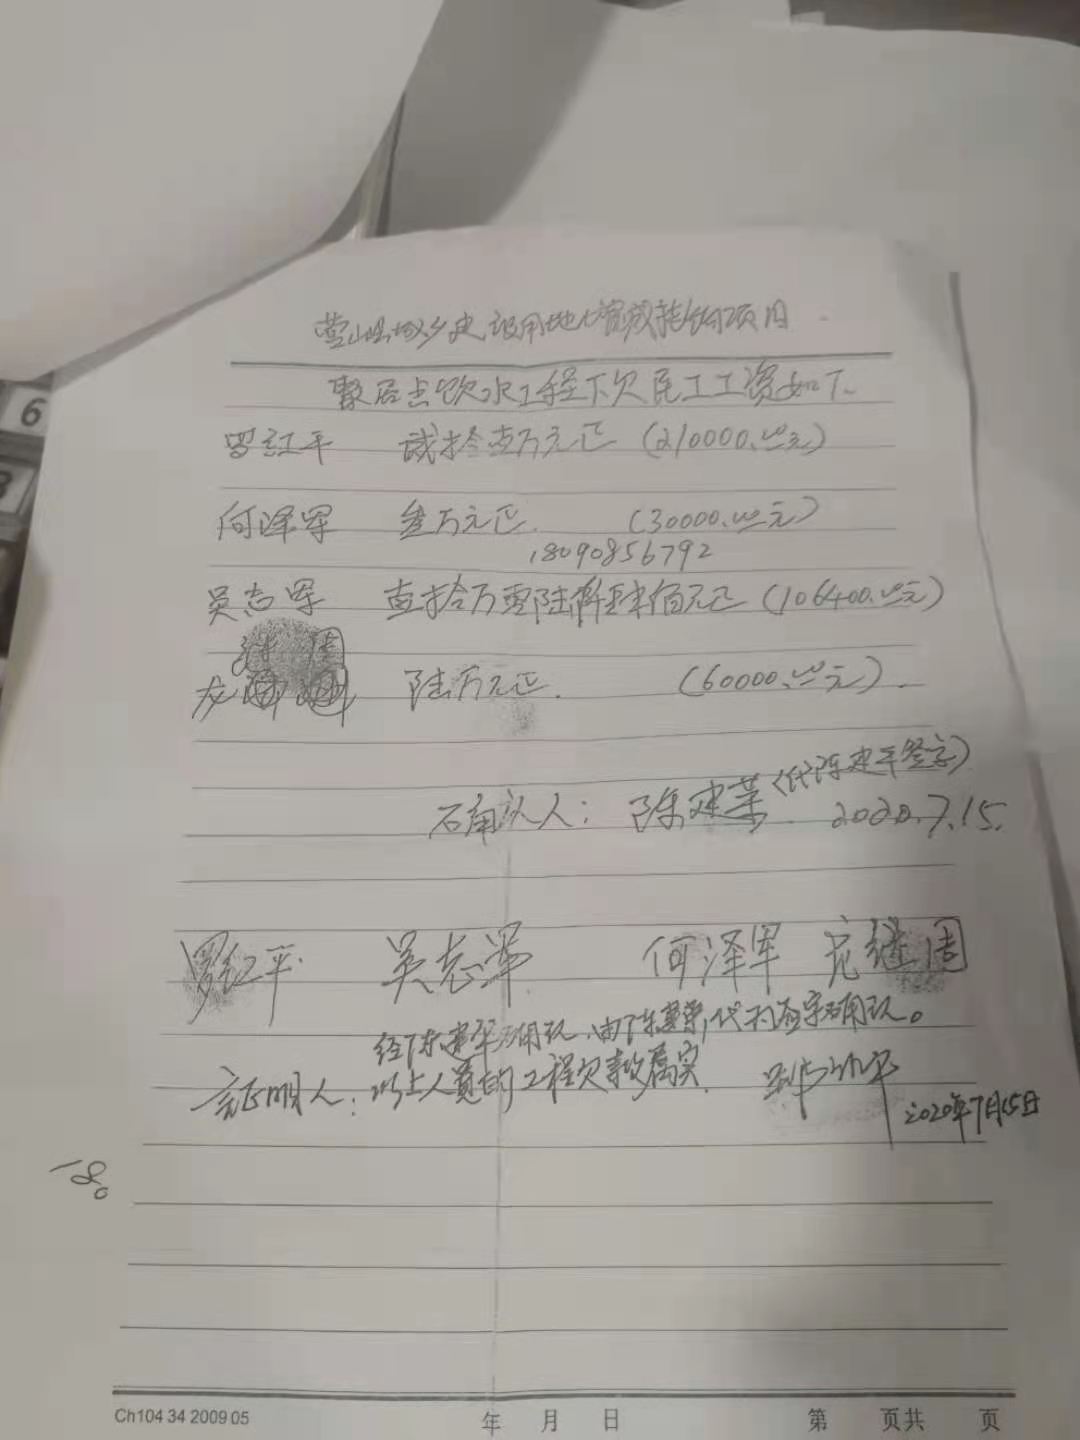 营山县城乡建设用地增减挂钩项目
聚居点饮水工程下欠民工工资如下
罗红平 贰拾壹万元正 (210000.00元)
何泽军 叁万元正 (30000.00元)
18090856792
吴志军 壹拾万零陆仟肆佰元正 (106400.00元)
继周
龙 陆万元正 (60000.00元)
确认人: 陈建荣 (代陈建平签字)
2020.7.15.
罗红平 吴志军 何泽军 龙继周
经陈建华确认,由陈建荣代为签字确认。
证明人: 以上人员的工程欠款属实
2020年7月15日
180
6
Ch104 34 2009 05 年 月 日 第 页共 页